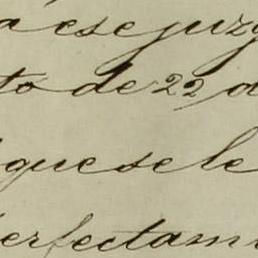 a ese juzg
to de 22, d
que se le
perfectam